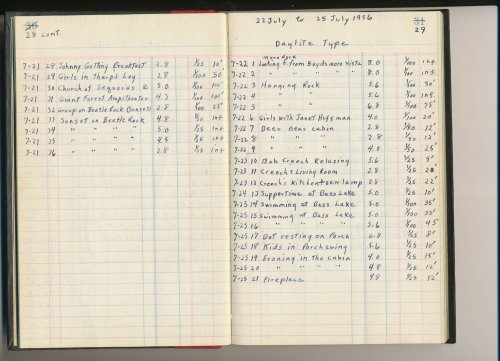 28 cont.
7-21 28 Johnny Getting Breakfast 2.8 1/25 10'
7-21 29 Girls in Tharps Log 2.8 1/100 50
7-21 30 Church of Sequoias 5.0 1/100 100'
7-21 31 Grant Forest Ampitheater 4.3 1/100 100'
7-21 32 Group on Beetle Rock (Sunset) 2.8 1/100 25'
7-21 33 Sunset on Beetle Rock 4.8 1/50 inf
7-21 34 " " " " 5.0 1/25 inf
7-21 35 " " " " 4.5 1/25 inf
7-21 36 " " " " 2.8 1/25 inf
22 July to 25 July 1956
29
Daylite Type
Moro Rock
7-22 1 Looking E from Boyds Moro Vista 8.0 1/100 inf.
7-22 2 " " " " " 8.0 1/100 inf.
7-22 3 Hanging Rock 5.6 1/100 50'
7-22 4 " " 5.6 1/100 inf.
7-22 5 " " 6.8 1/100 75'
7-22 6 Girls with Janet Huffman 4.0 1/100 20'
7-22 7 Deer near cabin 2.8 12'
7-22 8 " " " 2.8 12'
7-22 9 " " " 4.0 25'
7-23 10 Bob Creech Relaxing 5.6 1/25 9'
7-23 11 Creechs Living Room 2.8 1/25 35'
7-23 12 Creechs Kitchen + new lamp 2.8 1/25 22'
7-24 13 Suppertime at Bass Lake 5.0 1/25 10'
7-25 14 Swimming at Bass Lake 5.0 1/100 35'
7-25 15 Swimming at Bass Lake 5.0 1/100 35'
7-25 16 " " " " 5.6 1/100 45'
7-25 17 Dot resting on Porch 6.8 1/25 8'
7-25 18 Kids in Porch swing 5.6 1/25 10'
7-25 19 Evening in the Cabin 4.0 1/25 15'
7-25 20 " " " " 4.8 1/25 12'
7-25 21 Fireplace 4.8 1/25 12'